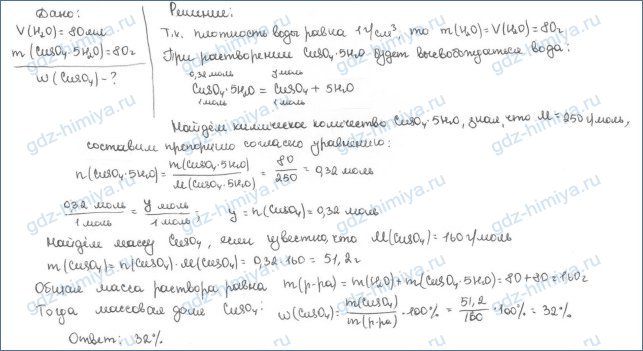 Дано:
V(H₂O) = 80 мл
m(CuSO₄·5H₂O) = 80г
w(CuSO₄) - ?
Решение:
Т.к. плотность воды равна 1 г/см³, то m(H₂O) = V(H₂O) = 80г
При растворении CuSO₄·5H₂O будет высвобождаться вода:
0,32 моль y моль
CuSO₄·5H₂O = CuSO₄ + 5H₂O
1 моль 1 моль
Найдём химическое количество CuSO₄·5H₂O, зная, что M = 250 г/моль,
составим пропорцию согласно уравнению:
n(CuSO₄·5H₂O) = m(CuSO₄·5H₂O) / M(CuSO₄·5H₂O) = 80 / 250 = 0,32 моль
0,32 моль / 1 моль = y моль / 1 моль; y = n(CuSO₄) = 0,32 моль
Найдём массу CuSO₄, если известно, что M(CuSO₄) = 160 г/моль
m(CuSO₄) = n(CuSO₄)·M(CuSO₄) = 0,32·160 = 51,2г
Общая масса раствора равна m(р-ра) = m(H₂O) + m(CuSO₄·5H₂O) = 80 + 80 = 160г
Тогда массовая доля CuSO₄: w(CuSO₄) = m(CuSO₄) / m(р-ра) · 100% = 51,2 / 160 · 100% = 32%
Ответ: 32%
gdz-himiya.ru